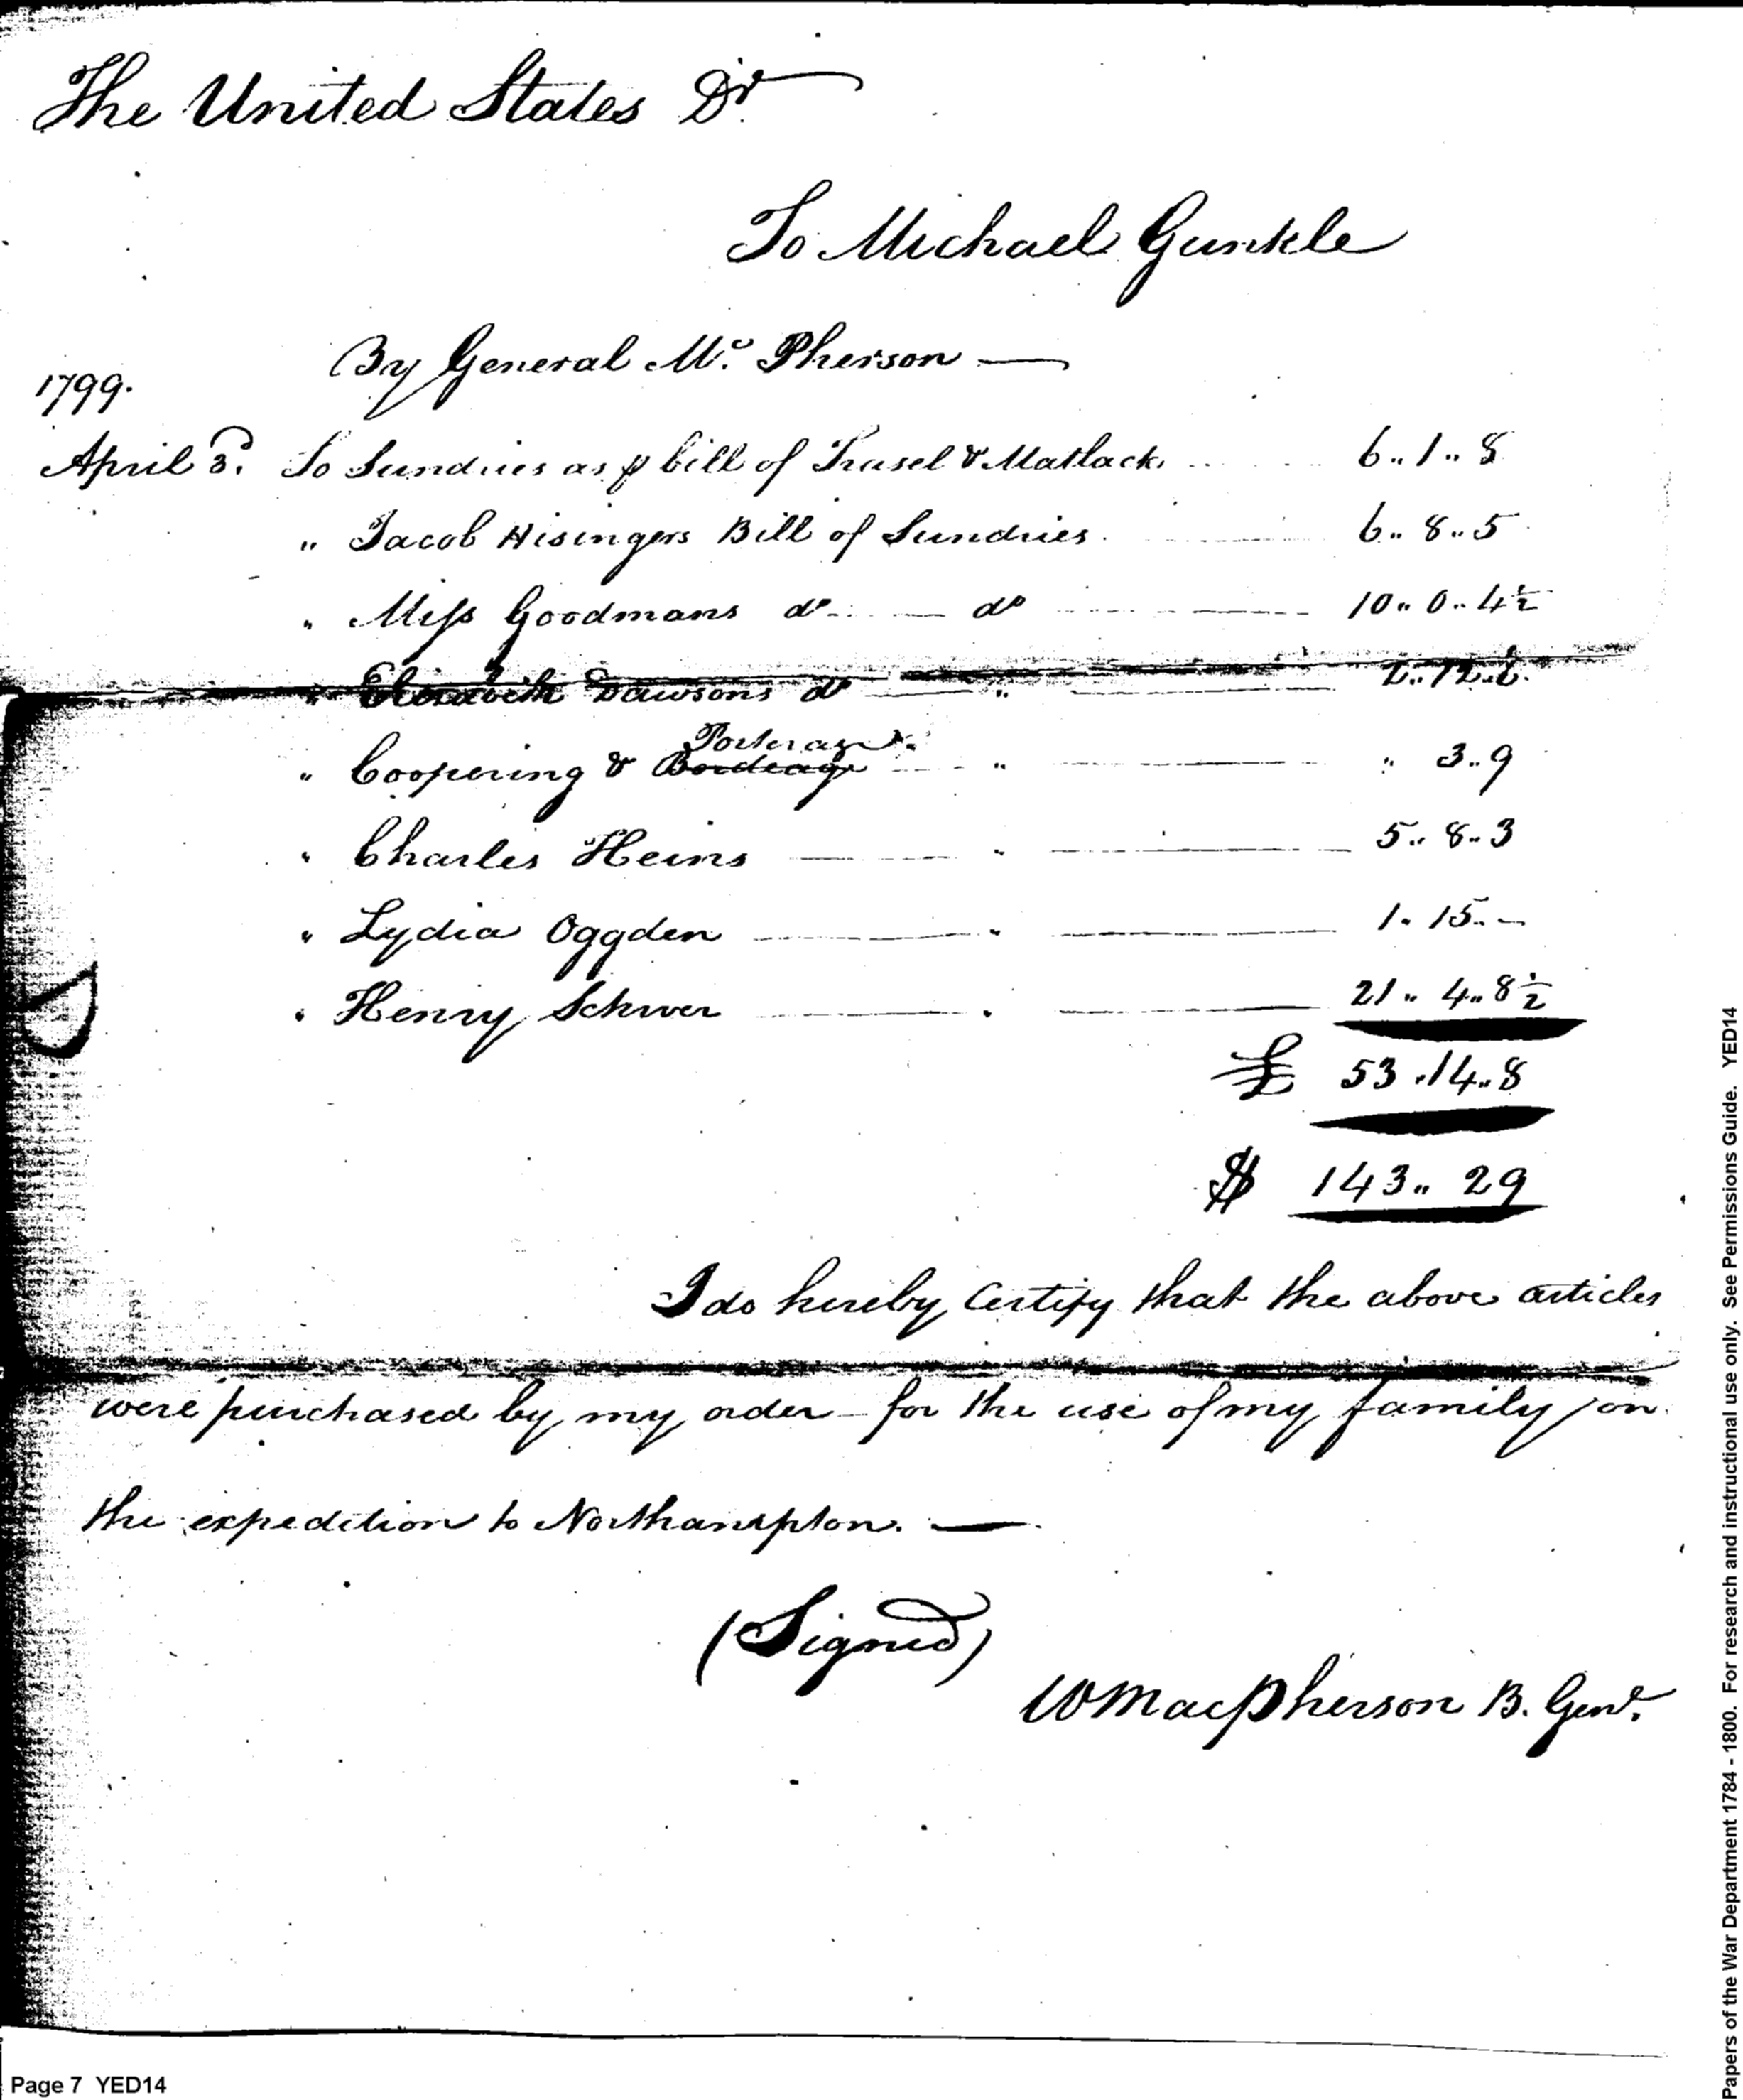 The United States Dr
To Michael Gunkle
By General Mc. Pherson —
1799.
April 3d. To Sundries as p bill of Trasel & Matlack 6.. 1.. 8
" Jacob Hisingers Bill of Sundries 6.. 8.. 5
" Miss Goodmans do do 10.. 0.. 4½
" Elizabeth Dawsons do " 2.. 12.. 6.
" Coopering & Bordeage Porterage " " 3.. 9
" Charles Heins " 5.. 8.. 3
" Lydia Oggden " 1. 15.. -
" Henry Schwer " 21.. 4.. 8½
£ 53.. 14.. 8
$ 143.. 29
I do hereby Certify that the above articles
were purchased by my order for the use of my family on
the expedition to Northampton. —
(Signed)
WMacpherson B. Genl.
Page 7 YED14
Papers of the War Department 1784 - 1800. For research and instructional use only. See Permissions Guide. YED14